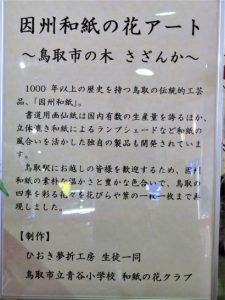 因州和紙の花アート
～鳥取市の木 さざんか～
1000年以上の歴史を持つ鳥取の伝統的工芸
品、「因州和紙」。
書道用画仙紙は国内有数の生産量を誇るほか、
立体漉き和紙によるランプシェードなど和紙の
風合いを活かした独自の製品も開発されていま
す。
鳥取駅にお越しの皆様を歓迎するため、因州
和紙の素朴な温かさと豊かな色合いで、鳥取の
四季を彩る花々を花びらや葉の一枚一枚まで表
現しました。
【制作】
ひおき夢折工房 生徒一同
鳥取市立青谷小学校 和紙の花クラブ